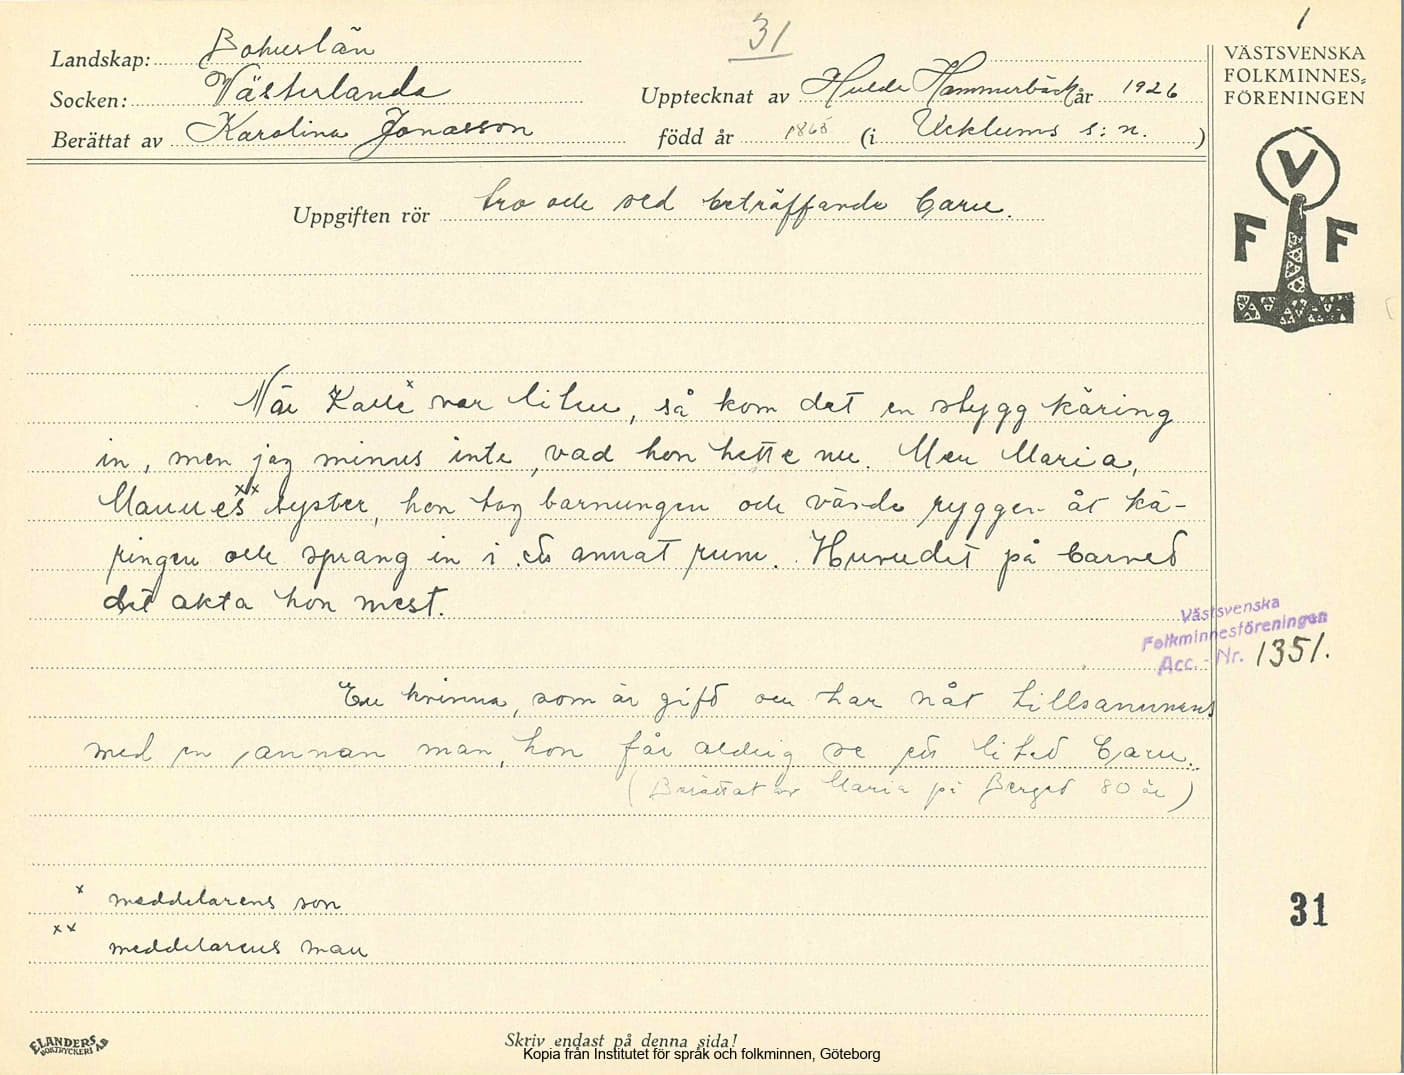 31
1
Landskap: Bohuslän
Socken: Västerlanda
Upptecknat av Hulda Hammarbäck år 1926
Berättat av Karolina Jonasson
född år 1865 (i Ucklums s:n.)
VÄSTSVENSKA
FOLKMINNES-
FÖRENINGEN
V
F F
Uppgiften rör tro och sed beträffande barn.
När Kalle x var liten, så kom det en stygg käring
in, men jag minns inte, vad hon hette nu. Men Maria,
Mannes xx syster, hon tog barnungen och vände ryggen åt kä-
ringen och sprang in i ett annat rum. Huvudet på barnet
det akta hon mest.
Västsvenska
Folkminnesföreningen
Acc.-Nr. 1351.
En kvinna, som är gift och har nåt tillsammans
med en annan man, hon får aldrig se ett litet barn.
(Berättat av Maria på Berget 80 år)
x meddelarens son
xx meddelarens man
31
ELANDERS
BOKTRYCKERI AB
Skriv endast på denna sida!
Kopia från Institutet för språk och folkminnen, Göteborg